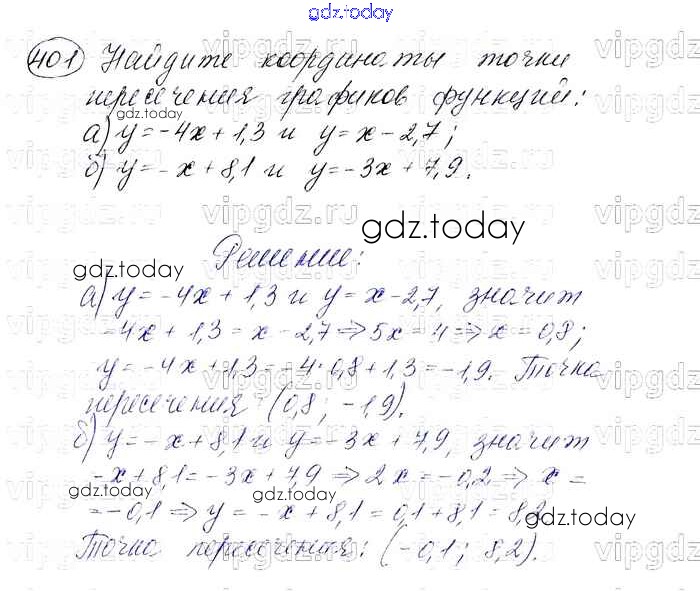 gdz.today
401 Найдите координаты точки
пересечения графиков функций:
gdz.today
а) y=-4x+1,3 и y=x-2,7;
б) y=-x+8,1 и y=-3x+7,9.
gdz.today
Решение:
gdz.today
а) y=-4x+1,3 и y=x-2,7, значит
-4x+1,3=x-2,7⇒5x=4⇒x=0,8;
y=-4x+1,3=-4·0,8+1,3=-1,9. Точка
пересечения (0,8; -1,9).
б) y=-x+8,1 и y=-3x+7,9, значит
-x+8,1=-3x+7,9⇒2x=-0,2⇒x=
gdz.today gdz.today
=-0,1⇒y=-x+8,1=0,1+8,1=8,2
gdz.today
Точка пересечения: (-0,1; 8,2).